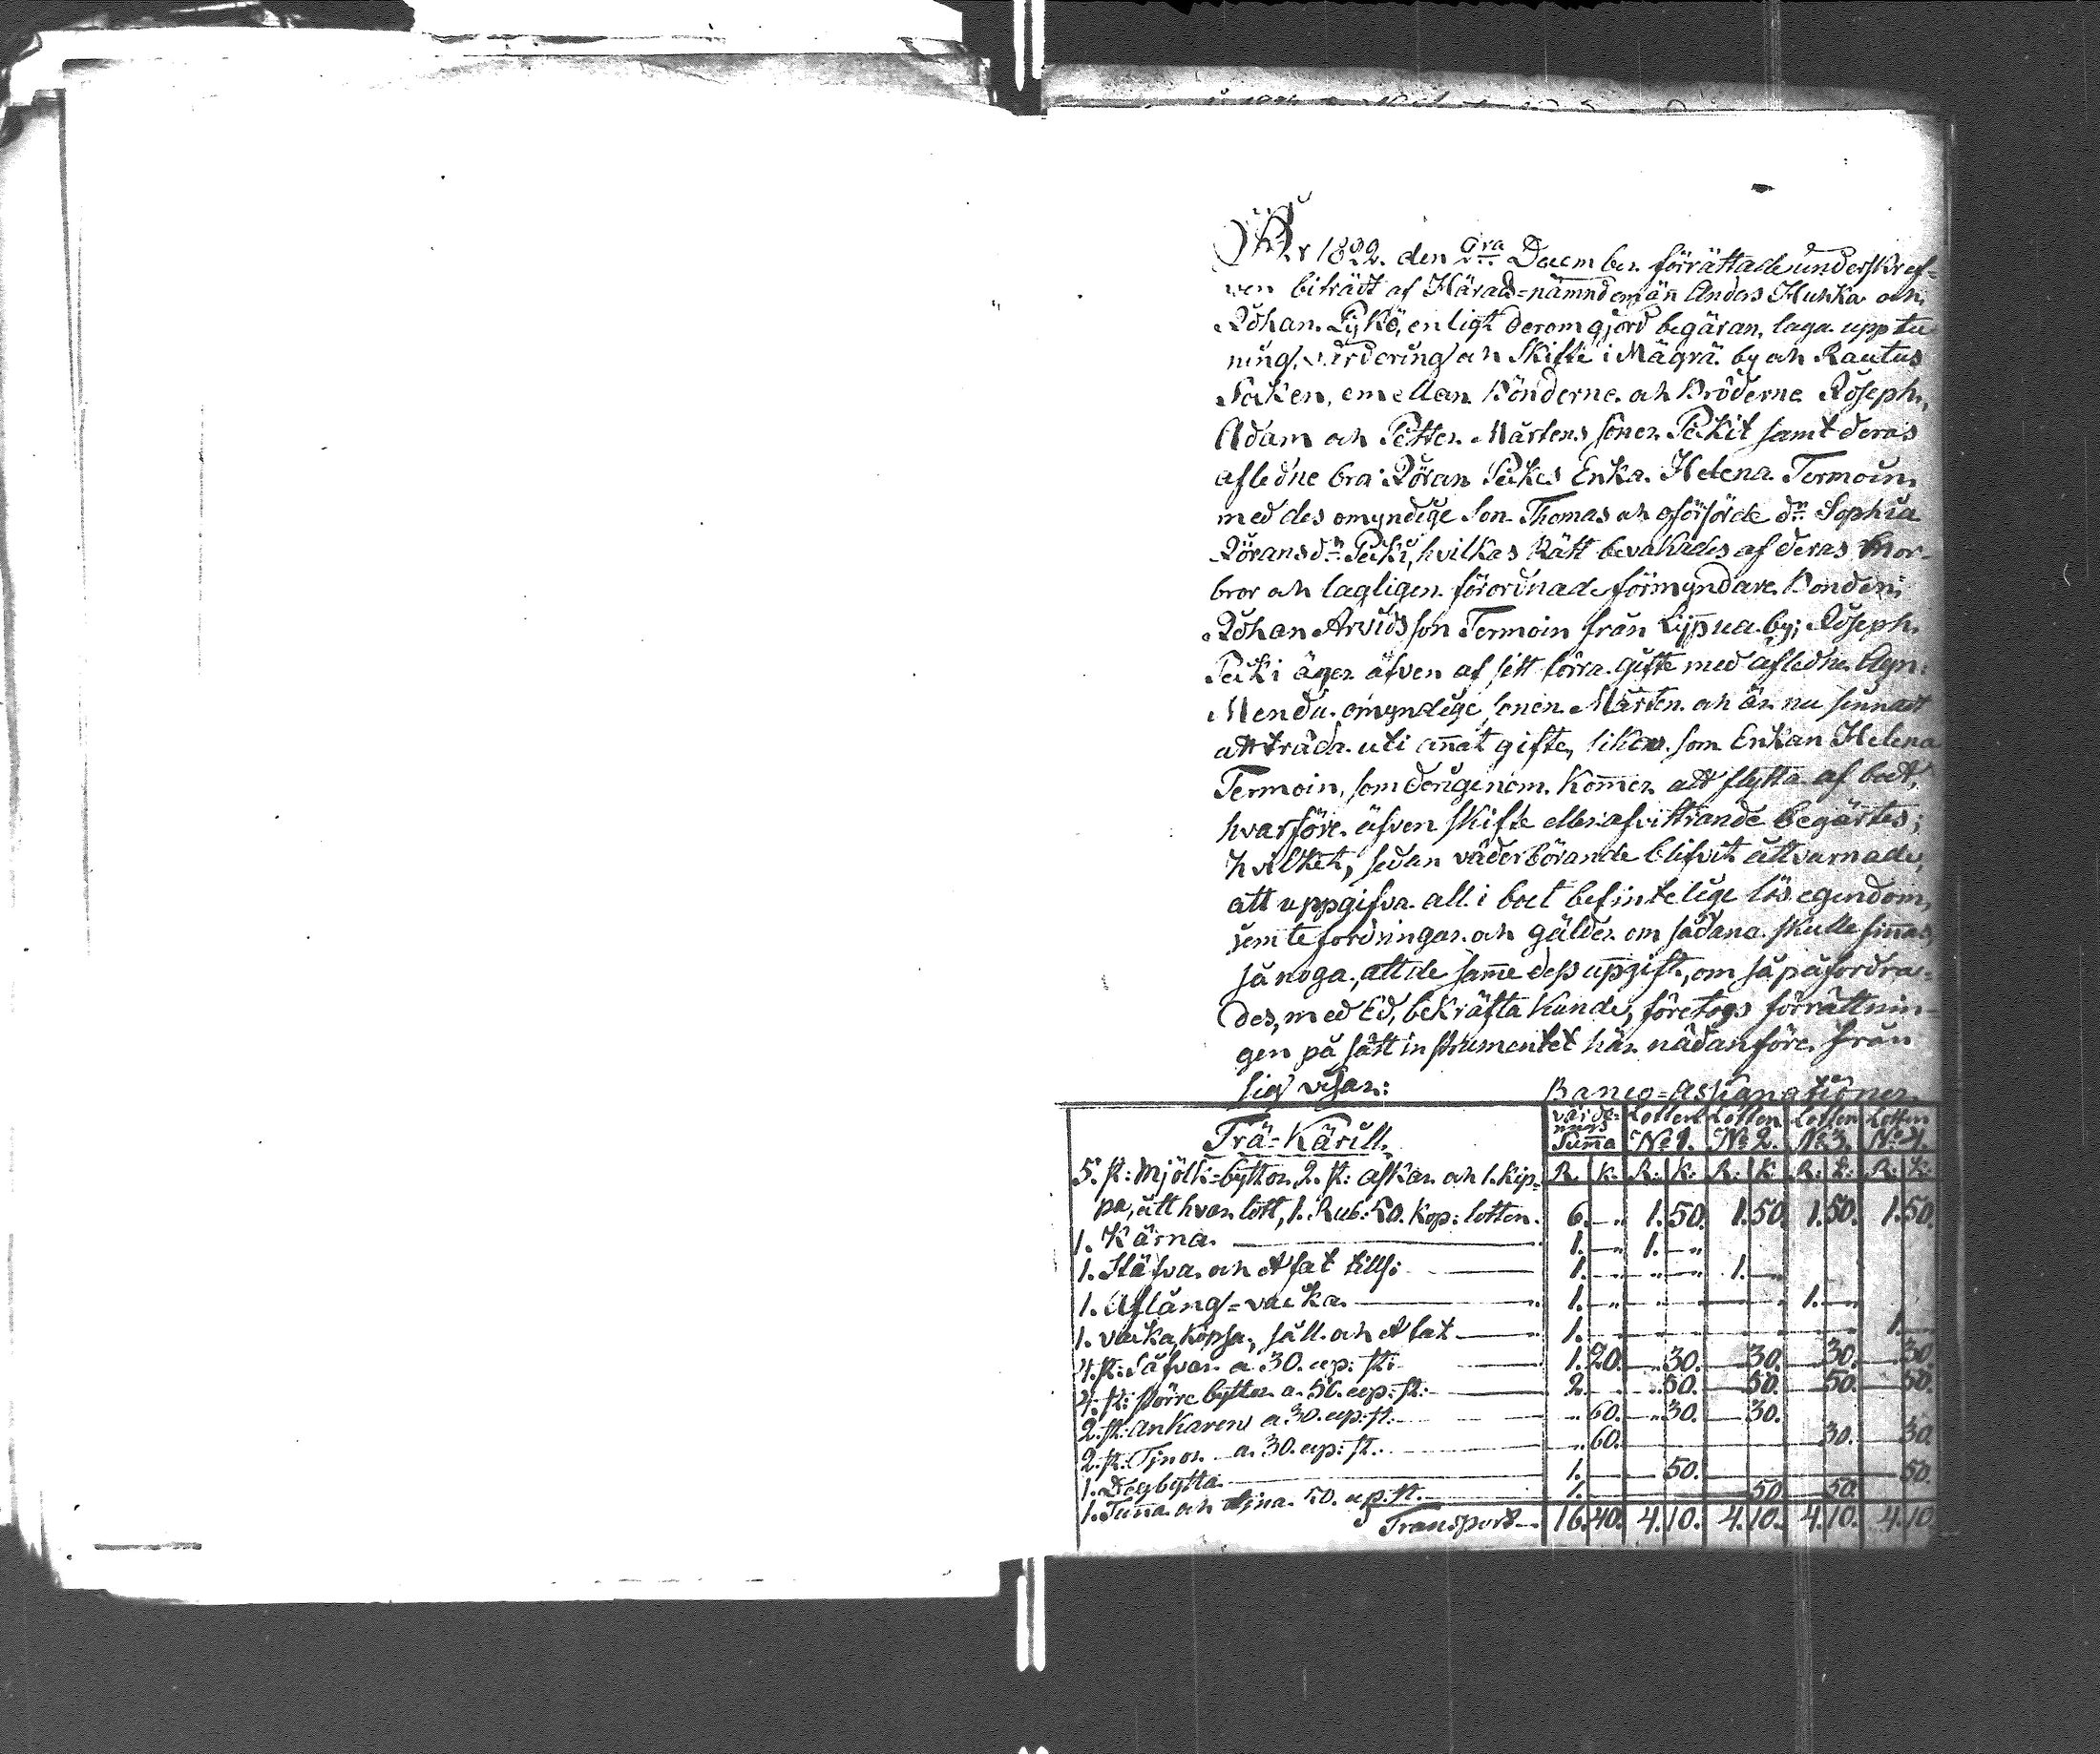 År 1822. den 2dra December. förrättade underskref-
ven biträdt af Härads=nämndemän Anders Hukka och
Johan Pykö, enligt derom gjord begäran, laga uppteck-
ning, värdering och Skifte i Mägrä by och Rautus
Socken, emellan Bönderne och Bröderne Joseph,
Adam och Petter Mårtens söner Peikit samt deras
afledne bror Jöran Peikes Enka Helena Termoin,
med des omyndige Son Thomas och oförsörde dr. Sophia
Jöransdr. Peiki, hvilkas Rätt bevakades af deras Mor-
bror och lagligen förordnade förmyndare Bonden
Johan Arvidsson Termoin från Lypua by; Joseph
Peiki äger äfven af sitt förra gifte med afledne Agn:
Mendu omyndige sonen Mårten och är nu sinnadt
att träda uti annat gifte, likasom Enkan Helena
Termoin, som derigenom kommer att flytta af boet,
hvarföre äfven skifte eller afvittrande begärtes;
hvilket, sedan våderbörande blifvit åtvarnade,
att uppgifva all i boet befintelige lösegendom,
jemte fordringar och gälder om sådana skulle finnas,
så noga, att de samme dess upgift, om så påfordra-
des, med Ed, bekräfta kunde, företogs förrättnin-
gen på sätt instrumentet här nedanföre från
sig visar:
Banco=Assignationer
Trä=Kärill. Värde-rings Summa Lotten No 1. Lotten No 2. Lotten No 3. Lotten No 4.
5. st: Mjölk=byttor, 2. st: askar och 1. Kip- R. K. R: K: R: K: R: K: R: K:
pa, åtthvar lott, 1. Rub: 50. Kop: lotten. 6. — 1. 50. 1. 50. 1. 50. 1. 50.
1. Kärna. 1. — 1. —
1. Stäfva och et fat tills: 1. — 1. —
1. Aflång=vacka. 1. — 1. —
1. vacka, köpsa, såll och et fat 1. — 1. —
4. st: Såfvar a 30. cop: st: 1. 20. 30. 30. 30. 30.
4. st: större byttor a 50. cop: st: 2. 50. 50. 50. 50.
2. st: ankaren a 30. cop: st: 60. 30. 30.
2. st: Tinor a 30. cop: st. 60. 30. 30.
1. Degbytta 1. 50. 50.
1. Tunna och tina 50. cop. st. 1. 50. 50.
Transport 16. 40. 4. 10. 4. 10. 4. 10. 4. 10